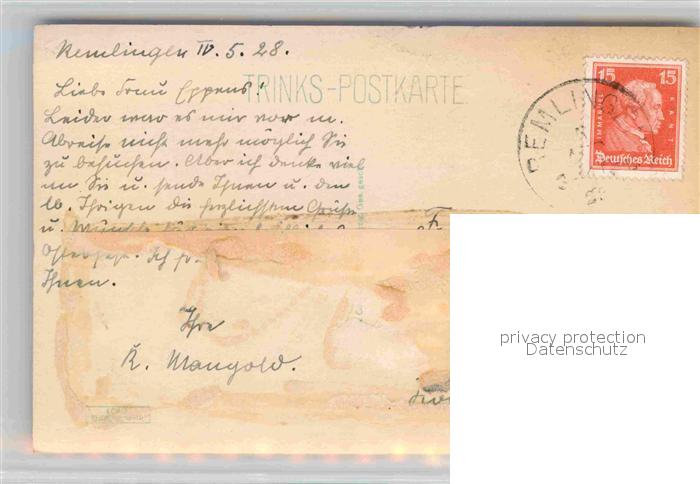 Remlingen IV. 5. 28.
TRINKS-POSTKARTE
Liebe Frau Eppens!
Leider war es mir vor m.
Abreise nicht mehr möglich Sie
zu besuchen. Aber ich denke viel
an Sie u. sende Ihnen u. den
lb. Ihrigen die herzlichsten Grüße
u. Wünsche
Osterfest. Ich
Ihnen.
Ihre
K. Mangold.
REMLINGEN
15 15
IMMANUEL KANT
Deutsches Reich
privacy protection
Datenschutz